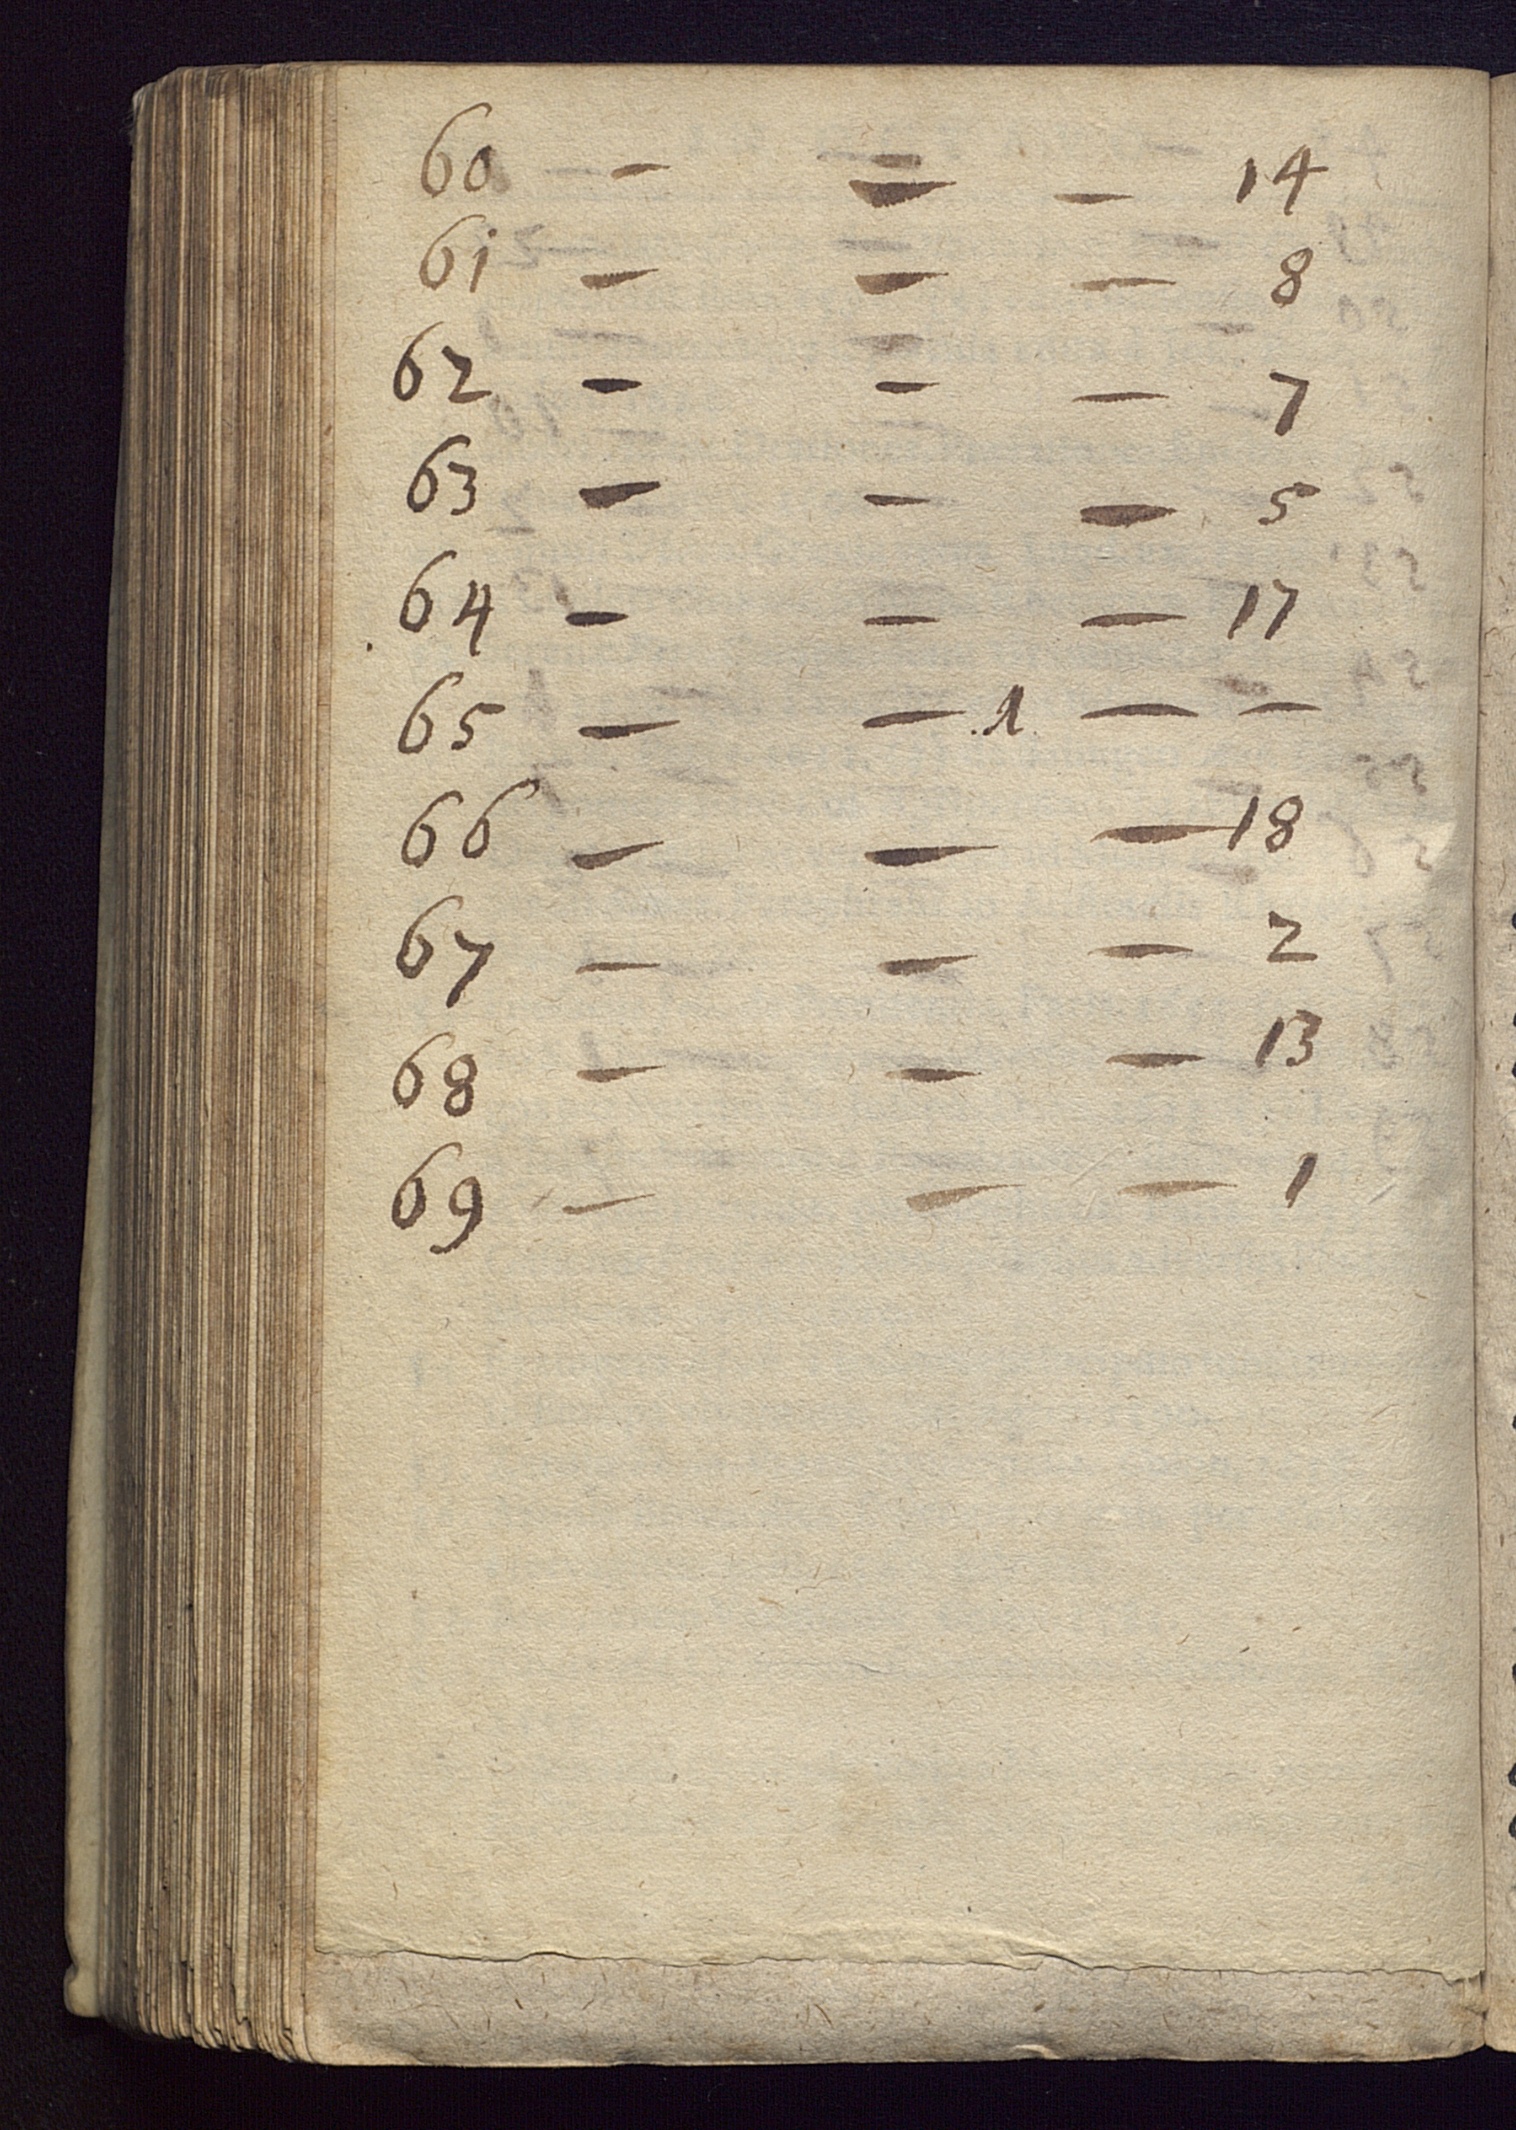 60 — — — 14
61 — — — 8
62 — — — 7
63 — — — 5
64 — — — 17
65 — — .1. — —
66 — — — 18
67 — — — 2
68 — — — 13
69 — — — 1